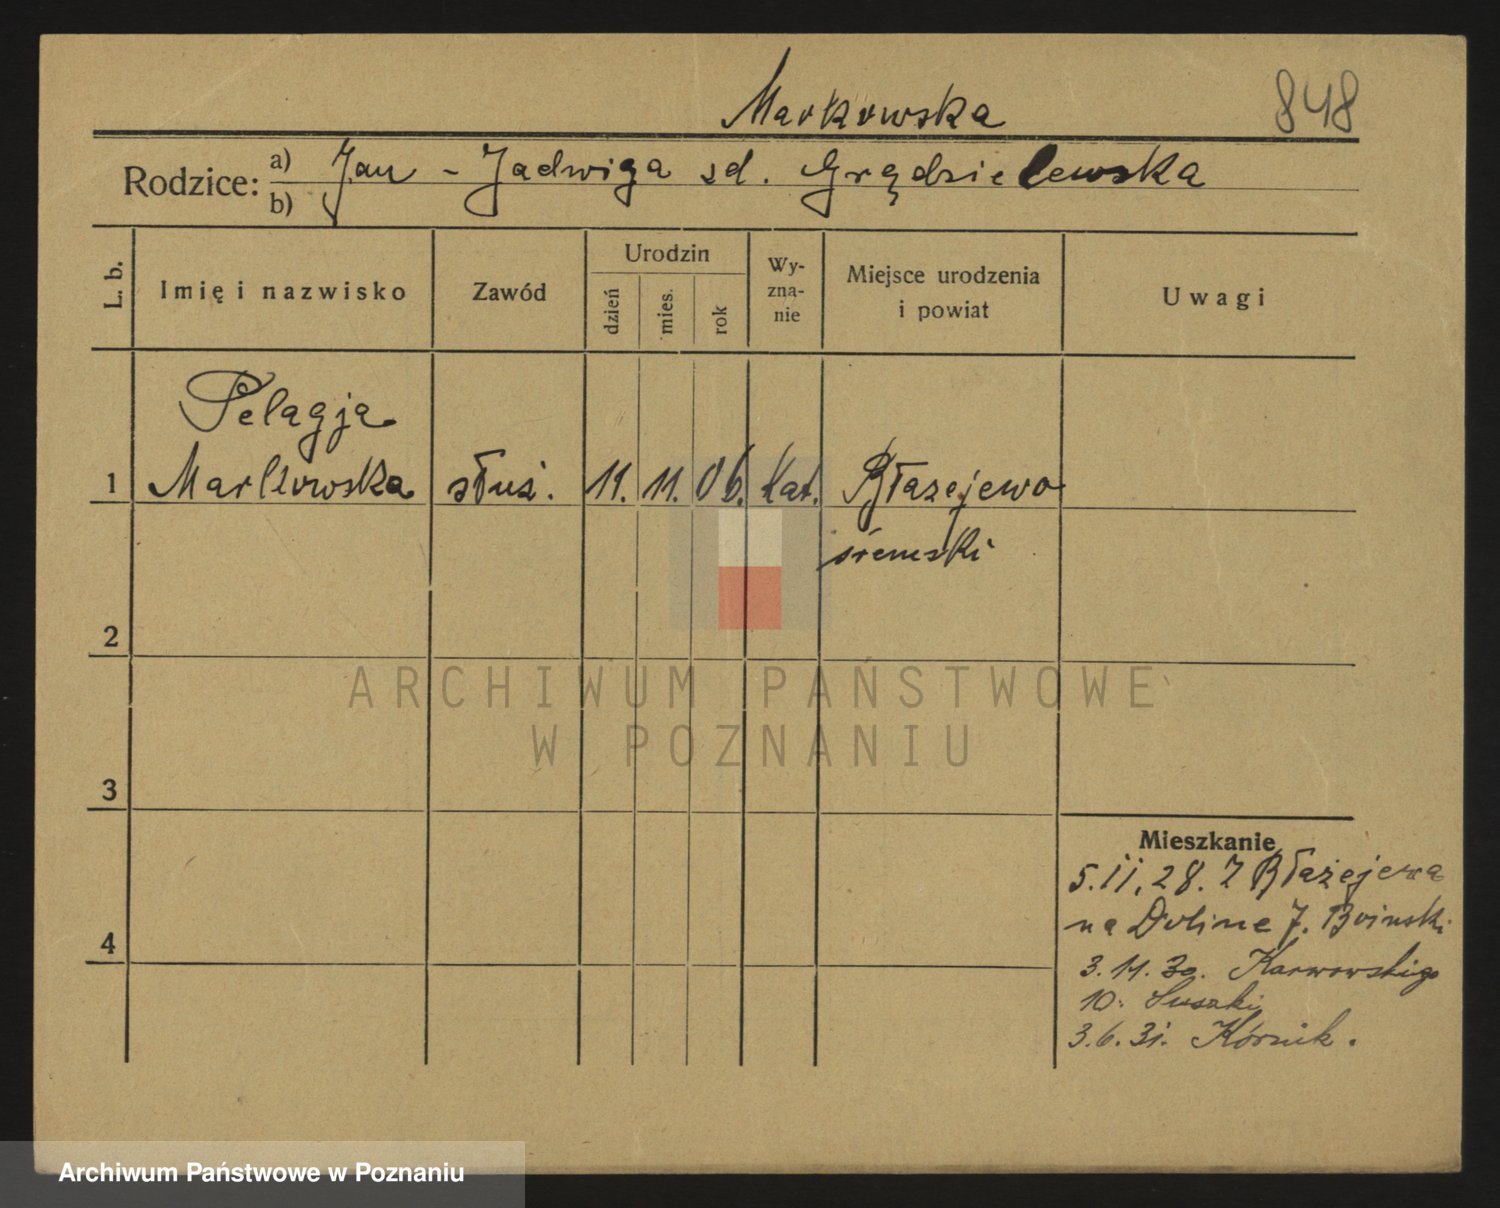 Markowska
848
Rodzice: a) Jan - Jadwiga zd. Grądzielewska
b)
L. b.
Imię i nazwisko
Zawód
Urodzin
dzień
mies.
rok
Wy-
zna-
nie
Miejsce urodzenia
i powiat
Uwagi
Pelagja
1 Markowska służ. 11. 11. 06. Kat. Błażejewo
śremski
2
3
4
Mieszkanie
5.11.28. Z Błażejewa
na Doline J.
3.11.30. Karwowskiego
10.
3.6.31. Kórnik.
ARCHIWUM PAŃSTWOWE
W POZNANIU
Archiwum Państwowe w Poznaniu